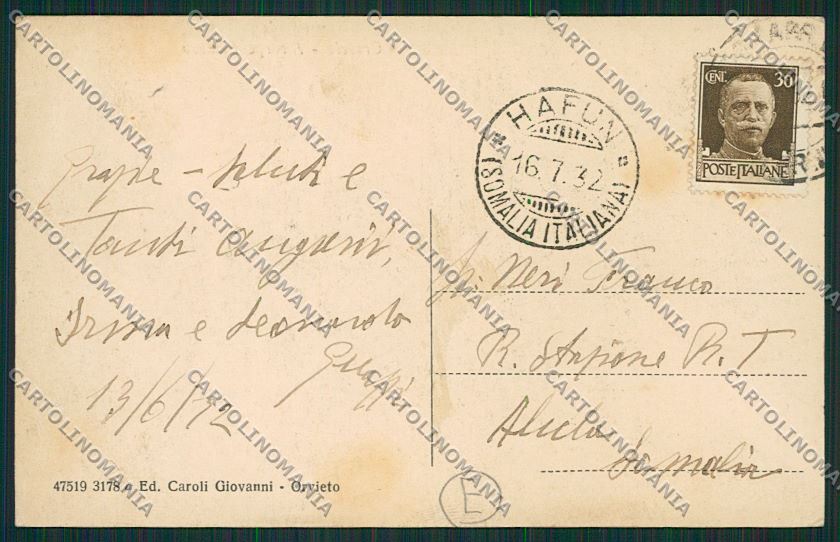 Grazie - saluti e
Tanti auguri,
Irma e Leonardo
13/6/32
47519 3178 - Ed. Caroli Giovanni - Orvieto
HAFUN
16.7.32
(SOMALIA ITALIANA)
CENT. 30
POSTE ITALIANE
Neri Franco
R. Stazione R. T
Alula
Somalia
E
CARTOLINOMANIA